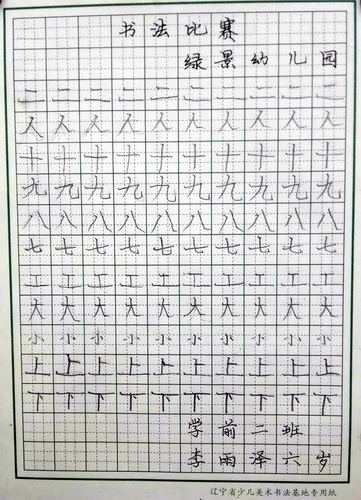 书法比赛
绿景幼儿园
二二二二二二二二二二
人人人人人人人人人人
十十十十十十十十十十
九九九九九九九九九九
八八八八八八八八八八
七七七七七七七七七七
工工工工工工工工工工
大大大大大大大大大大
小小小小小小小小小小
上上上上上上上上上上
下下下下下下下下下下
学前二班
李雨泽六岁
辽宁省少儿美术书法基地专用纸